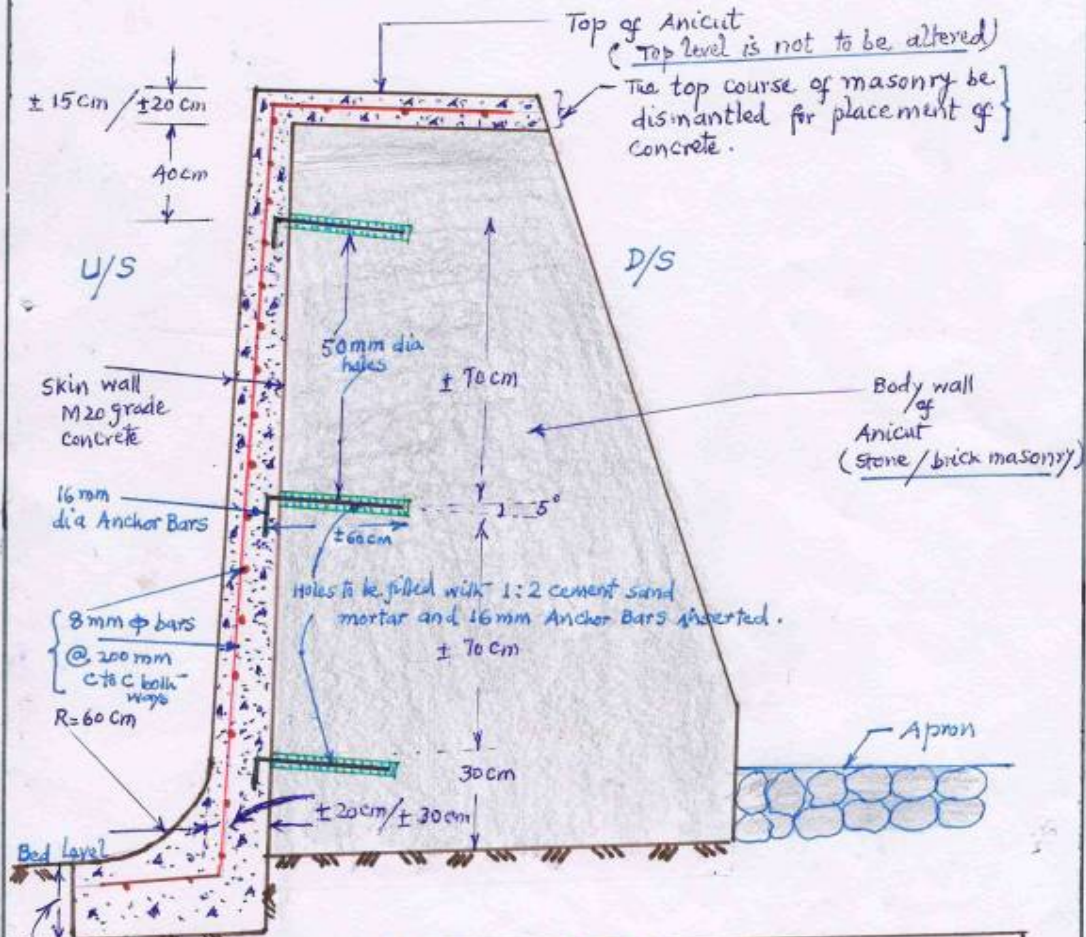 Top of Anicut
(Top level is not to be altered)
The top course of masonry be
dismantled for placement of
concrete.
± 15 cm / ±20 cm
40 cm
U/S
D/S
50 mm dia
holes
± 70 cm
Skin wall
M20 grade
Concrete
Body wall
of
Anicut
(Stone / brick masonry)
16 mm
dia Anchor Bars
5°
±60 cm
Holes to be filled with 1:2 cement sand
mortar and 16 mm Anchor Bars inserted.
± 70 cm
8 mm ф bars
@ 200 mm
C to C both
ways
R=60 Cm
Apron
30 cm
± 20 cm / ± 30 cm
Bed Level